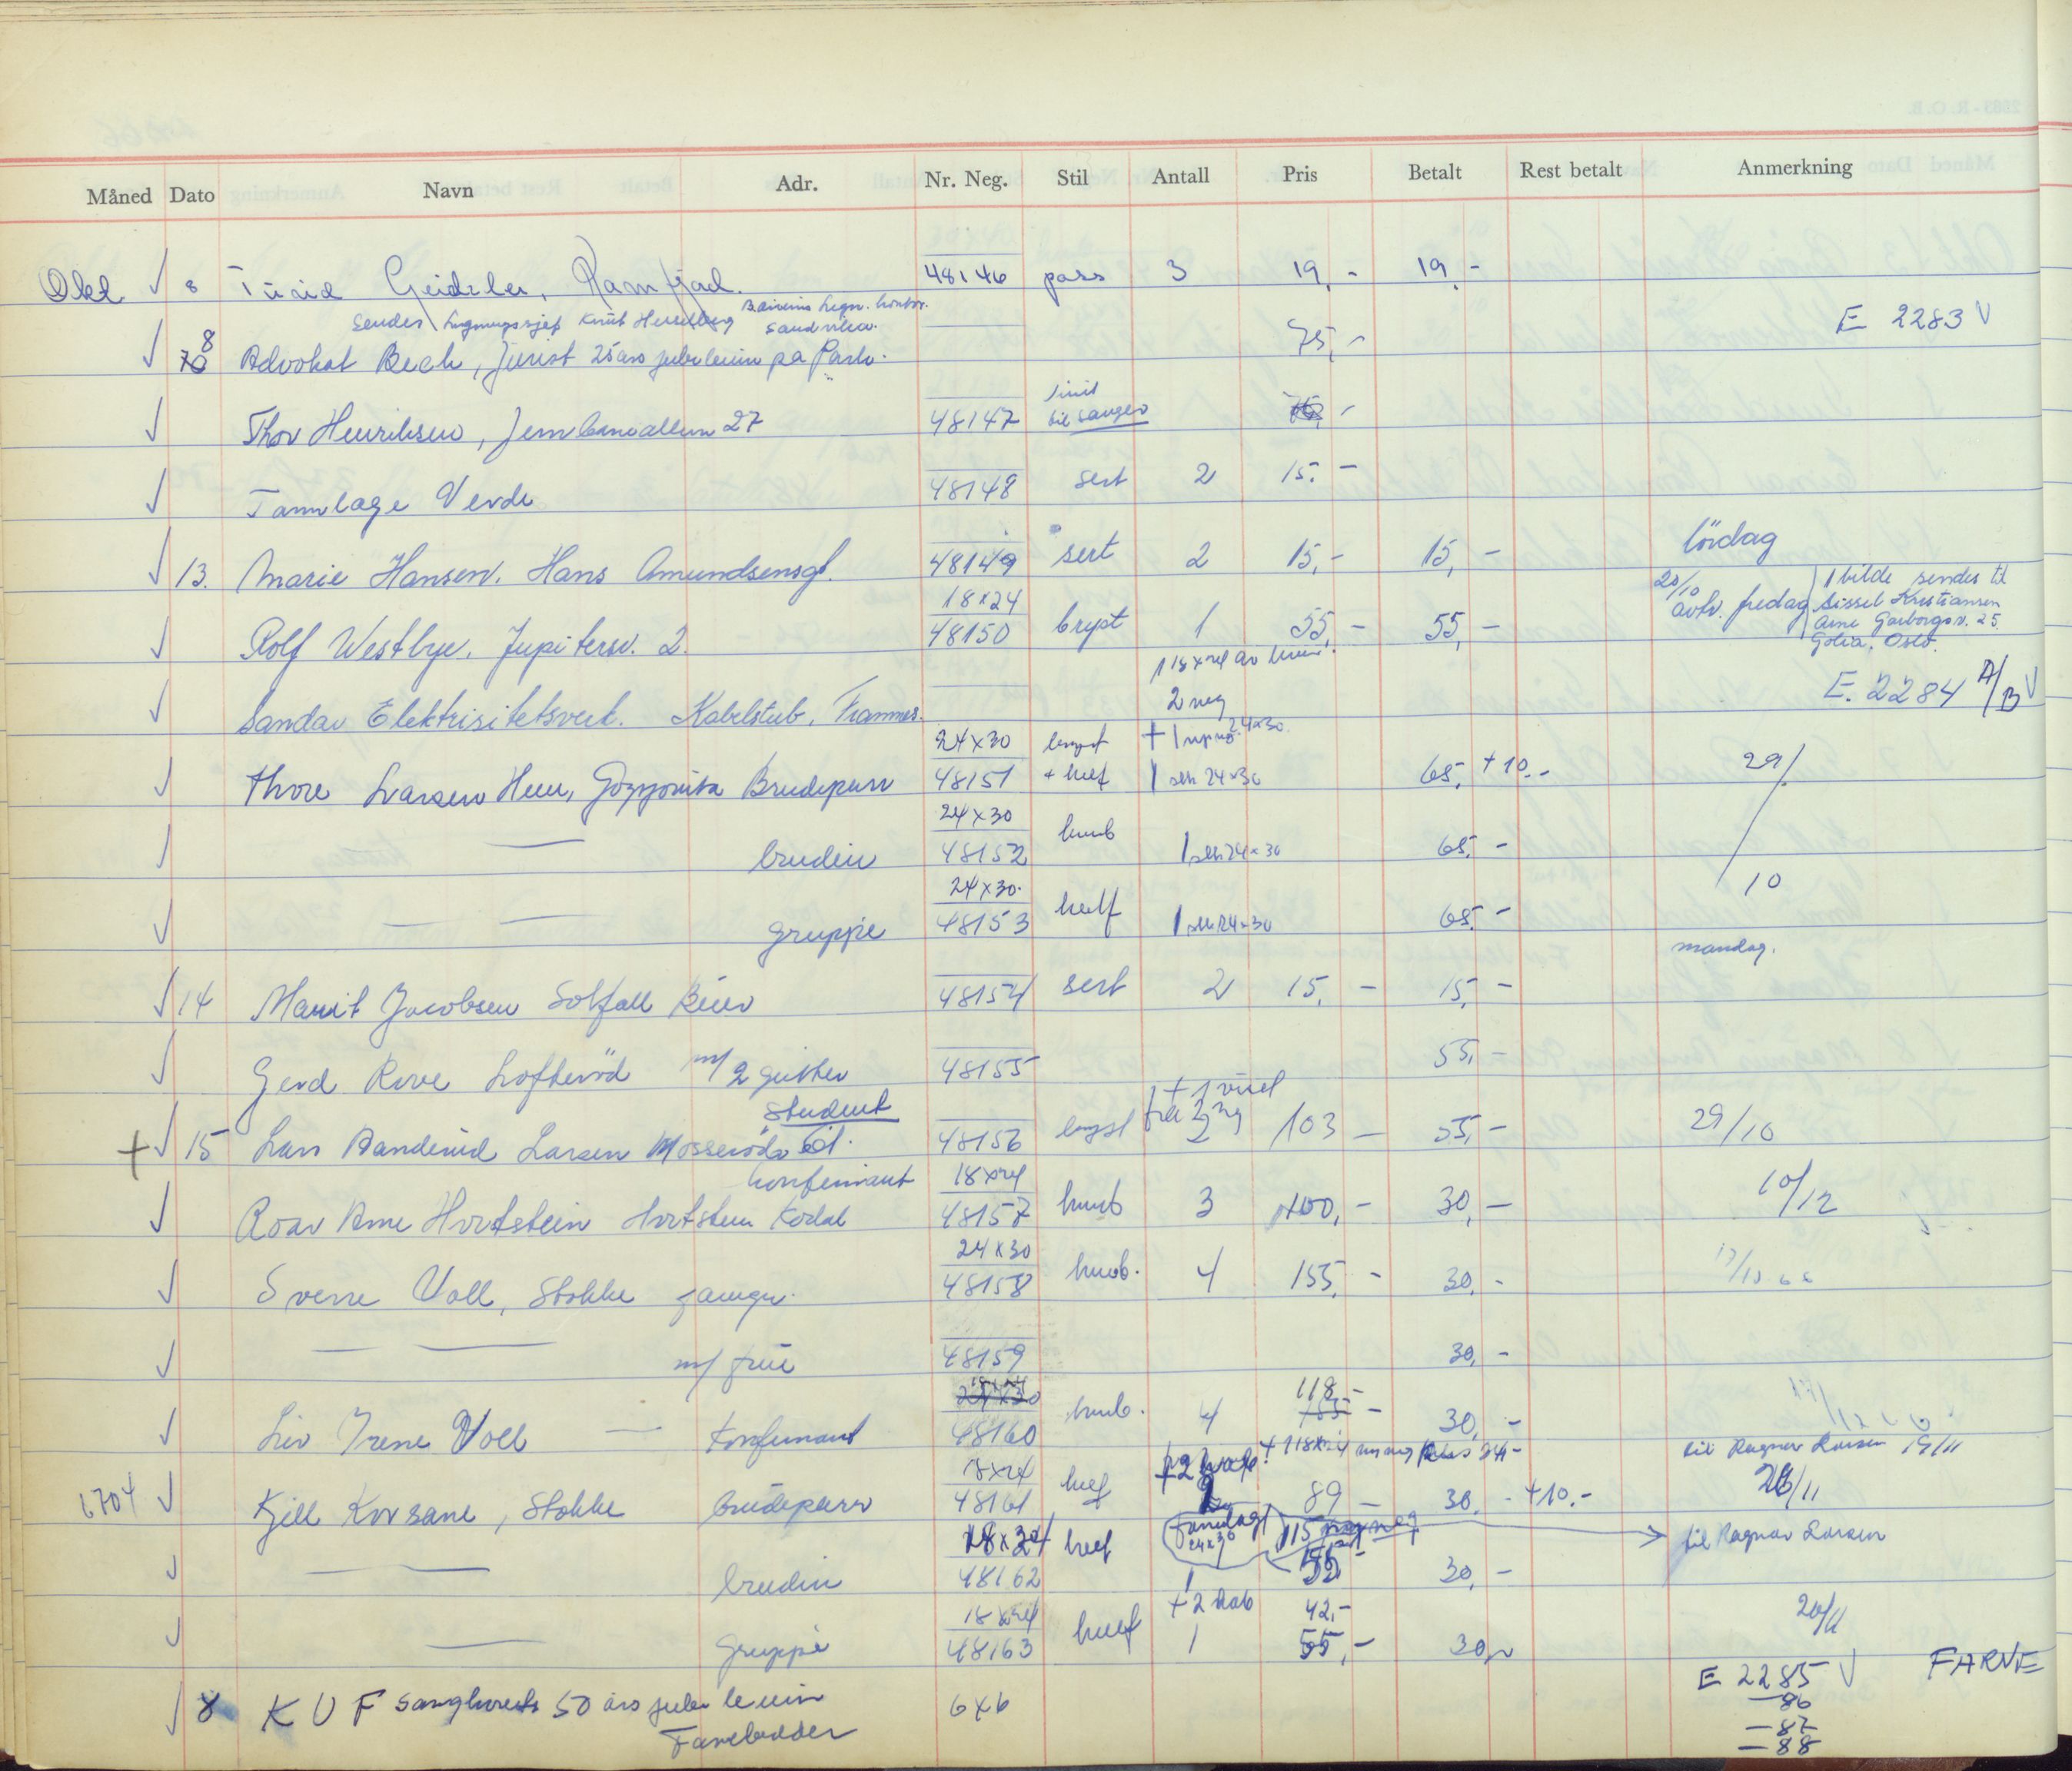 Måned Dato Navn Adr. Nr. Neg. Stil Antall Pris Betalt Rest betalt Anmerkning
Okt 8 Turid Geidzler, Ramfjad. 48146 pass 3 19,- 19,-
sendes Knut Herselberg kontor. Sandvika.
8 Advokat Bech, jurist 25 års jubileum på Park. 75,- E 2283 V
Thor Henriksen, Jernbanealleen 27 48147 til sanger
Tannlage Verde 48148 sert 2 15,-
13. Marie Hansen, Hans Amundsensgt. 48149 sert 2 15,- 15,- lördag
18x24
Rolf Westbye, Jupitersv. 2. 48150 bryst 1 55,- 55,- 20/10 avtv. fredag
1 bilde sendes til
Sissel Kristiansen
Arne Garborgsv. 25.
Golia. Oslo.
1 18x24 av hver
Sandar Elektrisitetsverk. Kabelstub. Framnes. 2 neg E. 2284 A/B V
24x30 bryst + 1 24x30
Thore Larsen Brudepar 48151 + helf 1 24x30 65,- +10,- 29/10
24x30
brudin 48152 1 24x30 65,-
24x30
gruppe 48153 helf 1 24x30 65,-
mandag.
14 Marit Jacobsen Solfall 48154 sert 2 15,- 15,-
Gerd Rove Lofteröd m/2 gutter 48155 55,-
student + 1 visit
+ 15 Lars Larsen Mosserödv 61. 48156 bryst fra 2 neg 2 103 - 55,- 29/10
konfirmant 18x24
Roar Arne Hortstein Hortstein Kodal 48157 3 100,- 30,- 10/12
24x30
Sverre Voll, Stokke 48158 4 155,- 30,-
m/ frue 48159 30,-
118,-
Liv Irene Voll Konfirmant 48160 4 155,- 30,-
til Ragnar Larsen 19/11
18x24
6704 Kjell Korsane, Stokke brudeparr 48161 helf 89 - 30,- +10,- 26/11
18x24 helf 24x30 115 til Ragnar Larsen
brudin 48162 1 30,-
18x24 + 2 kab 42,- 20/11
gruppe 48163 helf 1 55,- 30,-
8 K U F sangkorets 50 års jubileum 6x6 E 2285 V FARVE
Farvebilder — 86
— 87
— 88